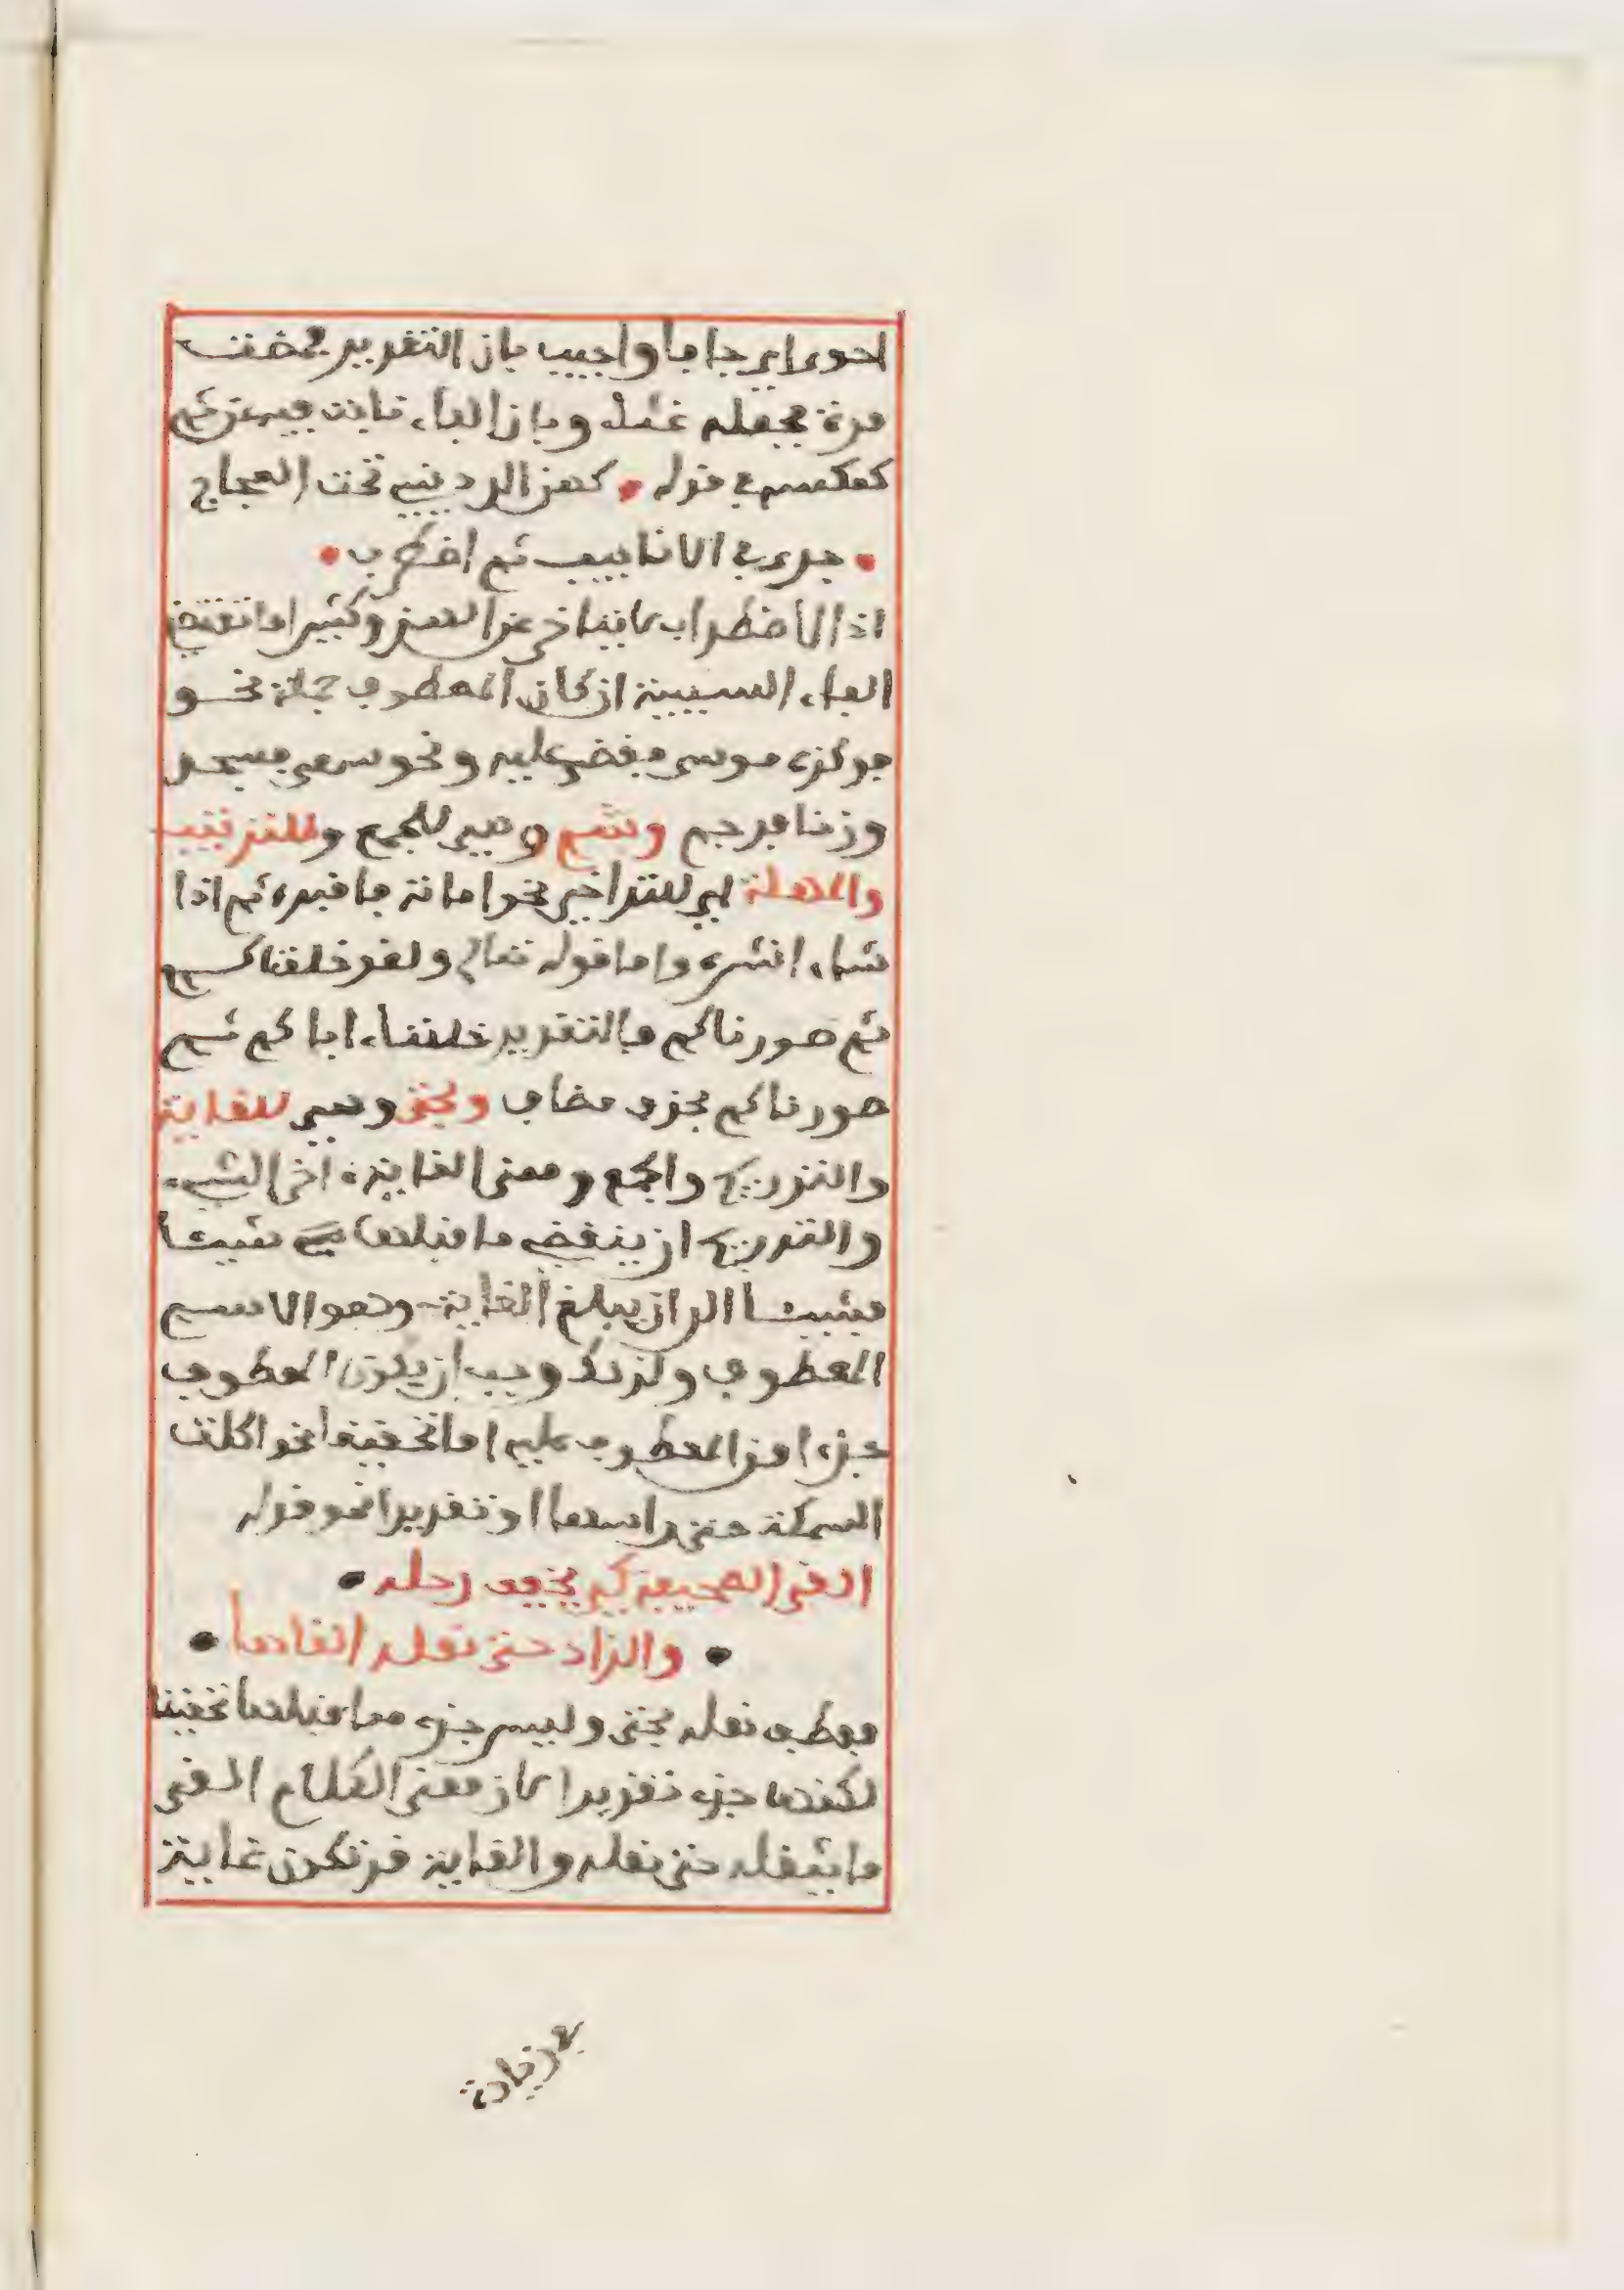 احوى اي جافا واجيب بان التقدير فمضت
مدة فجعله غثاء وبان الفاء نابت فيه عن ثم
كعكسه في قوله • كهز الرديني تحت العجاج
• جرى في الانابيب ثم اضطرب •
اذ الاضطراب لا يتاخر عن الهز وكثيرا ما تقتضي
الفاء السببية ان كان المعطوف جملة نحو
فوكزه موسى فقضى عليه ونحو سهى فسجد
وزنا فرجم وثم وهي للجمع وللترتيب
والمهلة اي للتراخي نحو اماته فاقبره ثم اذا
شاء انشره واما قوله تعالى ولقد خلقناكم
ثم صورناكم فالتقدير خلقنا اباكم ثم
صورناكم بحذف مضاف وحتى وهي للغاية
والتدريج والجمع ومعنى الغاية اخر الشيء
والتدريج ان ينقضي ما قبلها شيئا
فشيئا الى ان يبلغ الغاية وهو الاسم
المعطوف ولذلك وجب ان يكون المعطوف
جزءا من المعطوف عليه اما تحقيقا نحو اكلت
السمكة حتى راسها او تقديرا نحو قوله
القى الصحيفة كي يخفف رحله •
• والزاد حتى نعله القاها •
فعطف نعله بحتى وليس جزء مما قبلها تحقيقا
لكنها جزء تقديرا لان معنى الكلام القى
ما يثقله حتى نعله والغاية قد تكون غاية
في زيادة